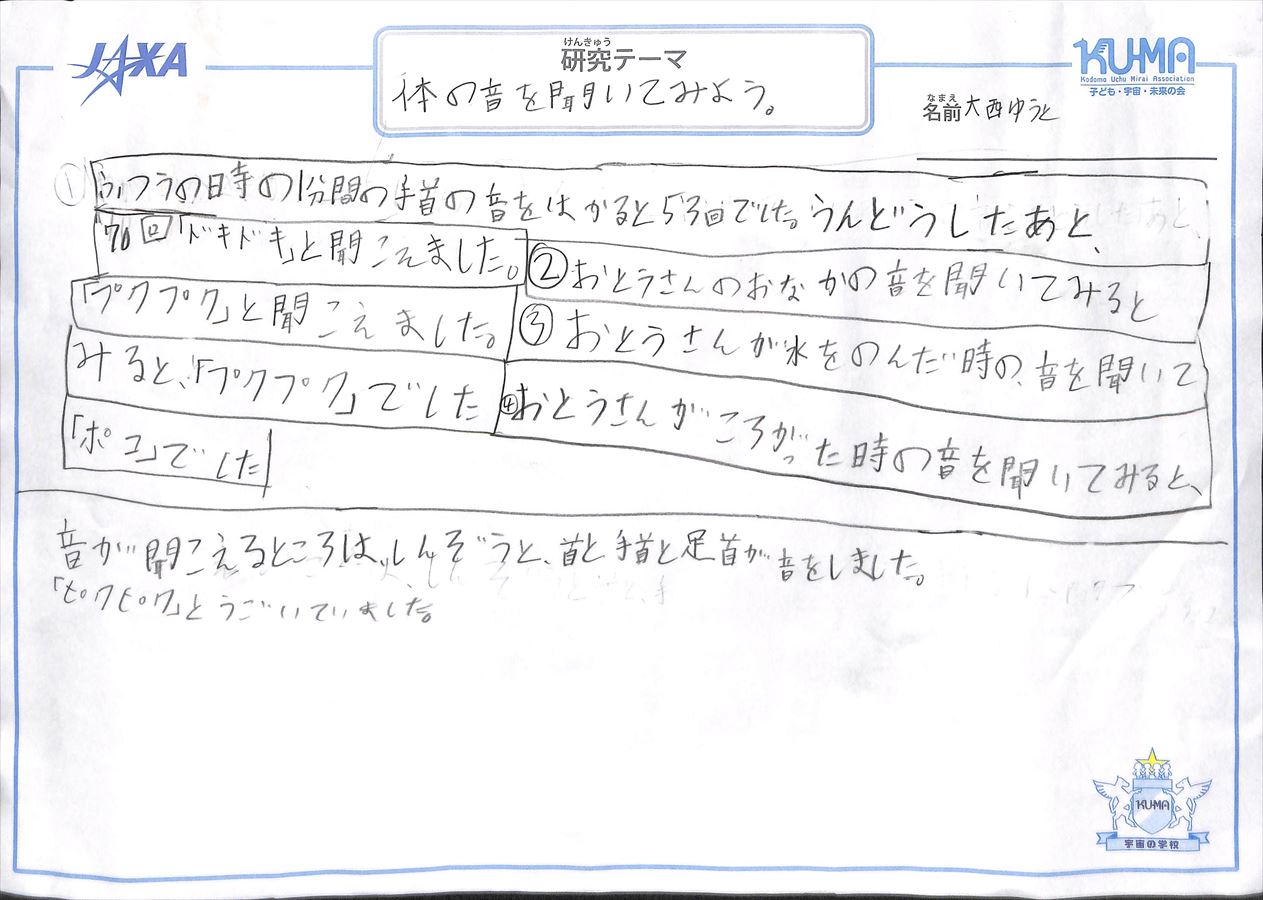 JAXA
けんきゅう
研究テーマ
体の音を聞いてみよう。
KU-MA
Kodomo Uchu Mirai Association
子ども・宇宙・未来の会
なまえ
名前 大西ゆうと
① ふつうの日時の1分間の手首の音をはかると53回でした。うんどうしたあと、
70回「ドキドキ」と聞こえました。②おとうさんのおなかの音を聞いてみると
「プクプク」と聞こえました。③おとうさんが水をのんだ時の、音を聞いて
みると、「プクプク」でした④おとうさんがころがった時の音を聞いてみると、
「ポコ」でした
音が聞こえるところは、しんぞうと、首と手首と足首が音をしました。
「ピクピク」とうごいていました。
KU-MA
宇宙の学校